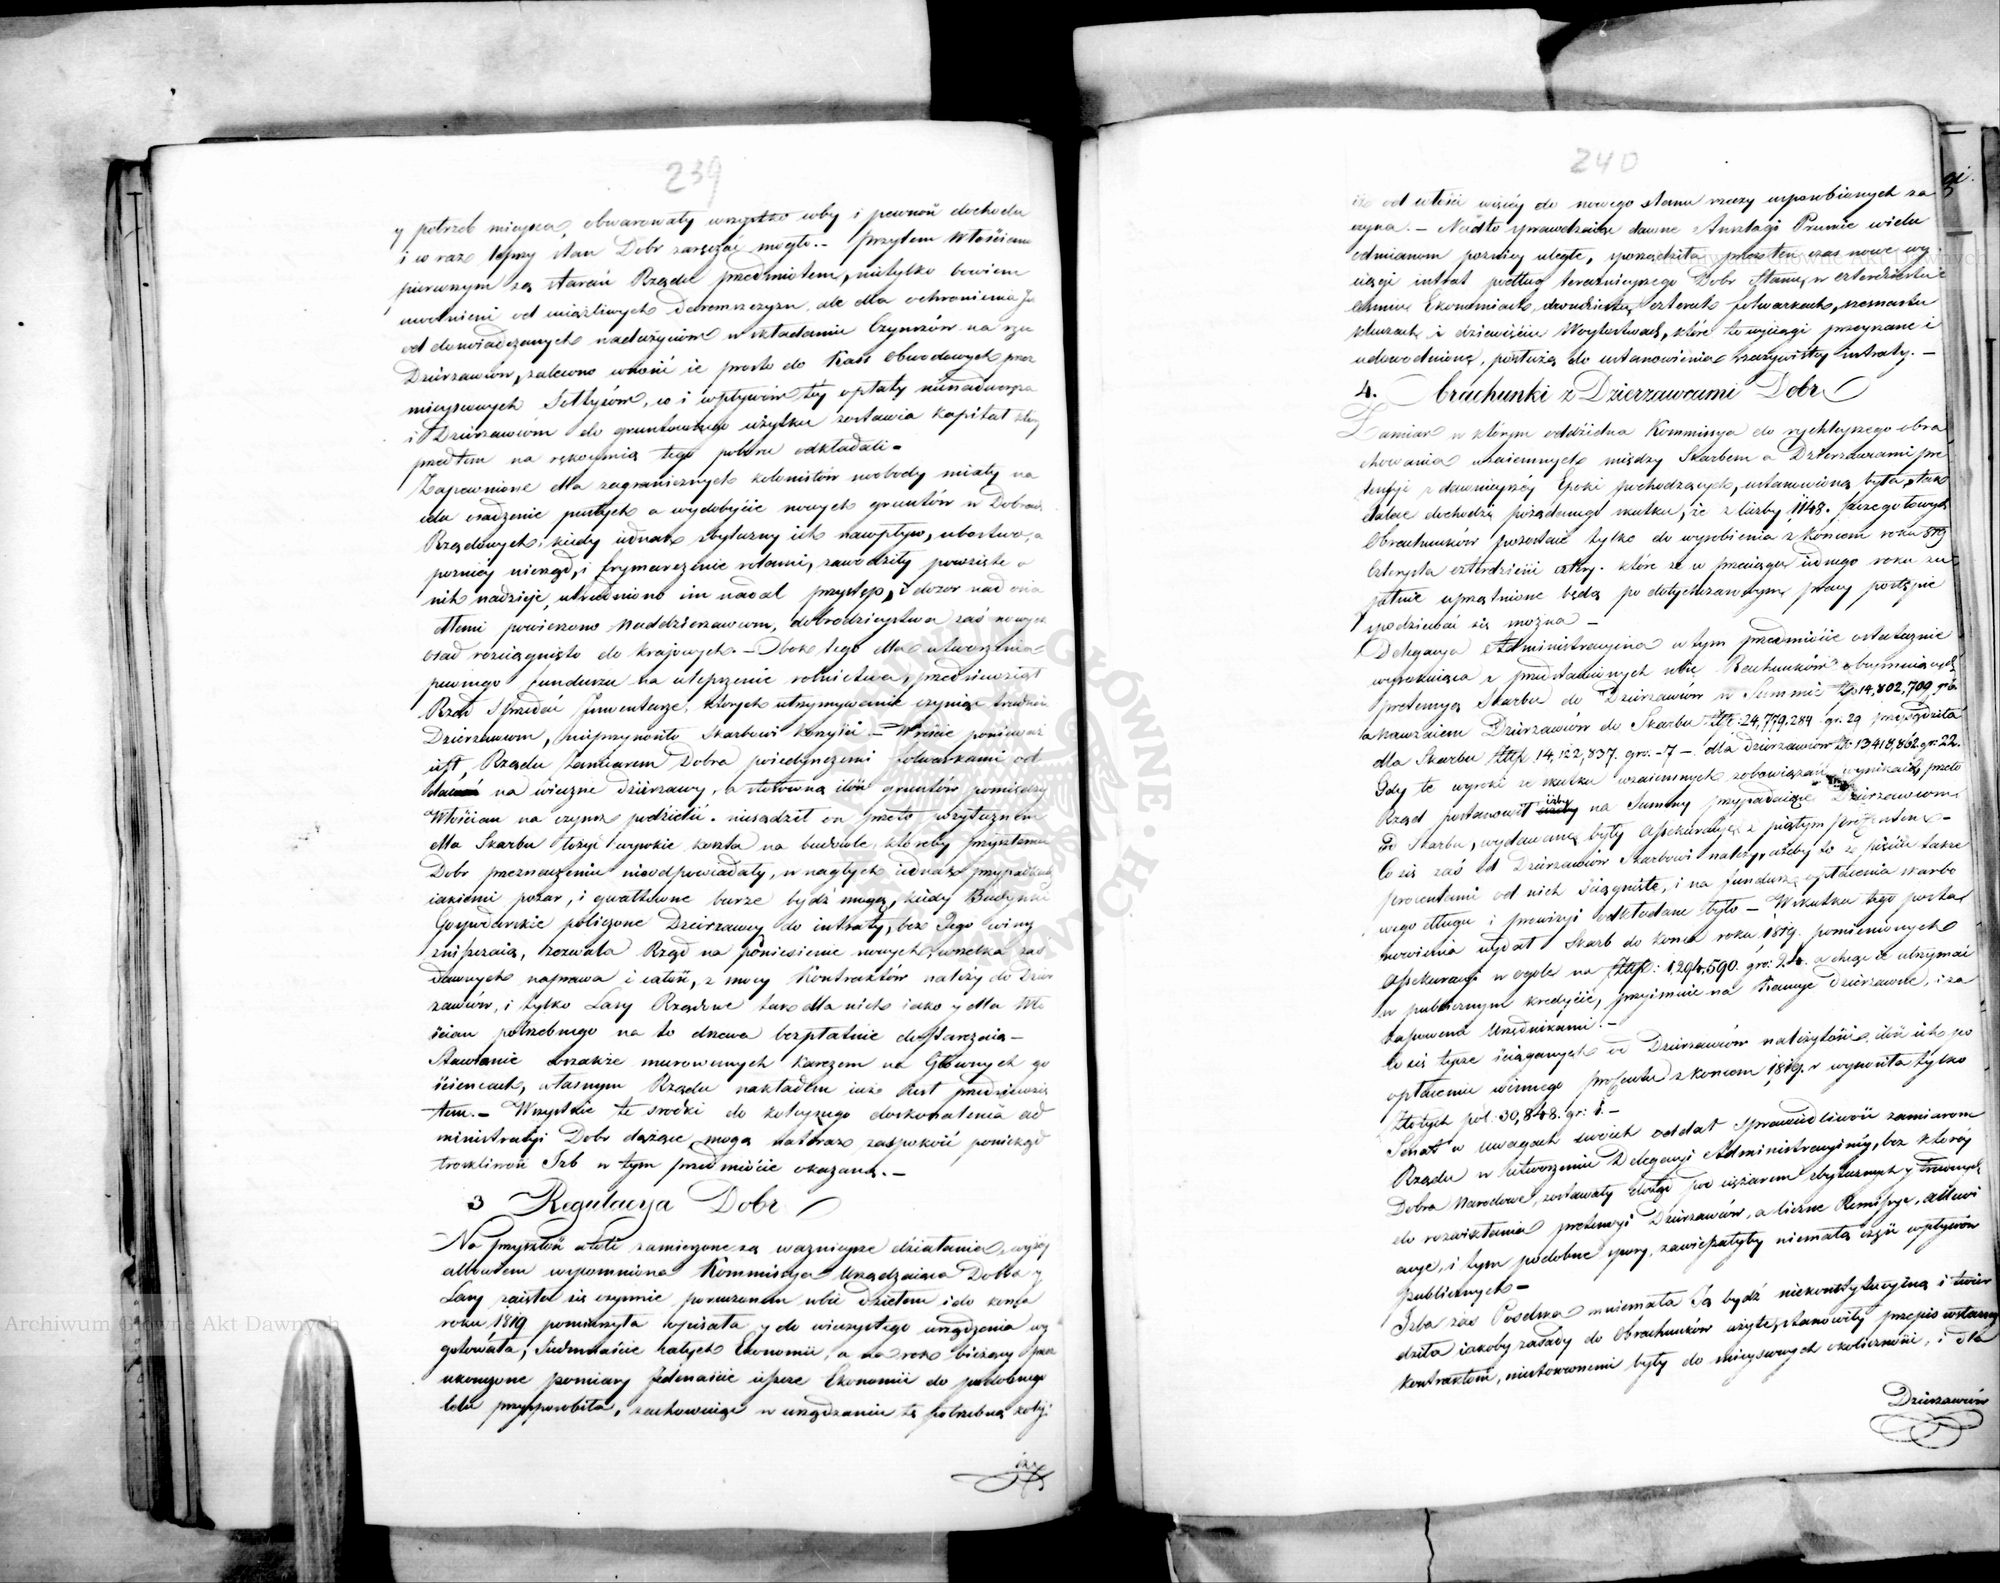 239
y potrzeb mieysca, obwarowały wszystko coby i pewność dochodu
i coraz lepszy stan Dobr zaręczać mogło. – Przytem Włościanie
pierwszym są starań Rządu przedmiotem, nietylko bowiem
uwolnieni od uciążliwych daremszczyzn, ale dla ochronienia
od doświadczanych nadużyciów w składaniu Czynszów na rzecz
Dzierżawców, zalecono wnosić je prosto do Kass Obwodowych przez
mieyscowych Sołtysów, co i wpływom tey opłaty
i Dzierżawcom do gruntownego użytku zostawia kapitał który
przedtem na rękoymią tego poboru odkładali –
Zapewnione dla zagranicznych kolonistów swobody miały na
celu osadzenie pustych a wydobycie nowych gruntów w Dobrach
Rządowych; kiedy jednak zbyteczny ich nawpływ, ubostwo, a
pozniey nierząd, i frymarczenie rolami, zawodziły powzięte o
nich nadzieje, utrudniono im nadal przystęp, i dozor nad
powierzono Naddzierżawcom, dobrodzieystwa zaś nowych
osad rozciągnięto do krajowych. – Obok tego dla utworzenia
pewnego funduszu na ulepszenie rolnictwa, przedsięwziął
Rząd Sprzedać Inwentarze, których utrzymywanie czyniąc trudność
Dzierżawcom, nieprzynosiło Skarbowi korzyści – Wreście ponieważ
jest, Rządu zamiarem Dobra pojedynczemi folwarkami od
na wieczne dzierżawy, a stosowną ilość gruntów pomiędzy
Włościan na czynsz podzielić. niesądził on przeto pożytecznem
dla Skarbu łożyć wysokie koszta na budowle, któreby przyszłemu
Dobr przeznaczeniu nieodpowiadały, w nagłych jednak przypadkach
jakiemi pożar, i gwałtowne burze bydź mogą, kiedy Budynki
Gospodarskie policzone Dzierżawcy do intraty, bez Jego winy
zniszczeią, zezwala Rząd na poniesienie nowych, wszelka zaś
dawnych naprawa i całość, z mocy Kontraktów należy do Dzier
żawców, i tylko Lasy Rządowe tak dla nich jako y dla Wło
ścian potrzebnego na to drzewa bezpłatnie dostarczaią –
Stawianie wszakże murowanych karczem na Głównych go
ścincach, własnym Rządu nakładem już Jest przedsięwzię
tem. – Wszystkie te srodki do kolejnego doskonalenia ad
ministracyi Dobr dążące mogą nateraz zaspokoić poniekąd
troskliwość Izb w tym przedmiocie okazaną. –
3 Regulacya Dobr
Na przyszłość atoli zamierzone są ważnieysze działania, wyżey
albowiem wspomniona Kommissya Urządzaiąca Dobra y
Lasy zaięła się czynnie poruczonem sobie dziełem i do końca
roku 1819 pomierzyła opisała y do wieczystego urządzenia wy
gotowała, Siedmnaście całych Ekonomii, a na rok bieżący przez
ukończone pomiary Jedenaście jeszcze Ekonomii do podobnego
celu przysposobiła, zachowuiąc w urządzaniu tę potrzebną koley
iż
240
iż od części więcey do nowego stanu rzeczy usposobionych za
czyna. – Nadto sprawdzaiąc dawne Anszlagi Pruskie wielu
odmianom pozniey uległe, sporządziła przez ten czas nowe wy
ciągi intrat podług teraźnieyszego Dobr Stanu, w czterdziestu
Ekonomiach, dwudziestu czterech folwarkach, szesnastu
kluczach i dziewięciu Woytostwach, które to wyciągi przeyrzane i
udowodnione, posłużą do ustanowienia rzeczywistey intraty. –
4. Obrachunki z Dzierzawcami Dobr
Zamiar w którym oddzielna Kommissya do rychleyszego obra
chowania wzaiemnych między Skarbem a Dzierżawcami pre
tensyi z dawnieyszey Epoki pochodzących, ustanowioną była, tak
dalece dochodzi pożądanego skutku, że z liczby 1148. Szczegołowych
Obrachunków pozostaie tylko do wyrobienia z końcem roku 1819
Czterysta czterdzieści cztery. które że w przeciągu jednego roku zu
pełnie uprzątnione będą po dotychczasowym pracy postępie
spodziewać się można –
Delegacya Administracyina w tym przedmiocie ostatecznie
wyrokuiąca z przedstawionych sobie Rachunków obeymuiących
pretensye Skarbu do Dzierżawców w Summie Złp. 14,802,709, gr.
a nawzaiem Dzierżawców do Skarbu Złp: 24,779,284 gr. 29 przysądziła
dla Skarbu Złłp. 14,122,837. gro: –7 – dla dzierżawców Zł: 13418,862. gr: 22.
Gdy te wyroki ze skutku wzaiemnych zobowiązań wynikaią, przeto
Rząd postanowił iżby na Summy przypadaiące Dzierżawcom
od Skarbu, wydawane były Assekuracye z piątym procentem –
Co się zaś od Dzierżawców Skarbowi należy, ażeby to z pięciu także
procentami od nich ściągnięte, i na fundusz opłacenia skarbo
wego długu i prowizyi odkładane było – W skutku tego posta
nowienia wydał Skarb do końca roku 1819. pomienionych
Assekuracyi w ogole na Złłp: 1,294,590. gro: 24. a chcąc je utrzymać
w publicznym kredycie, przyimuie na kaucye dzierżawne, i za
zapewnia Urzędnikami. –
Co się tycze ściąganych od Dzierżawców należytości, ilość ich po
opłaceniu winnego procentu z końcem 1819. r wynosiła tylko
Złotych pol. 30,848. gr: 1. –
Senat w uwagach swoich oddał sprawiedliwość zamiarom
Rządu w utworzeniu Delegacyi Administracyiney, bez którey
Dobra Narodowe, zostawały długo pod ciężarem zbytecznych y trudnych
do rozwikłania pretensyi Dzierżawców, a liczne Remissye, allewi
acye, i tym podobne spory, zawieszałyby niemałą część wpływów
publicznych –
Izba zaś Poselska mniemała Ją bydź niekonstytucyiną i twier
dziła jakoby zasady do Obrachunków użyte, stanowiły przepis wsteczny
kontraktom, niestosownemi były do mieyscowych okoliczności, i dla
Dzierżawców
Archiwum Główne Akt Dawnych